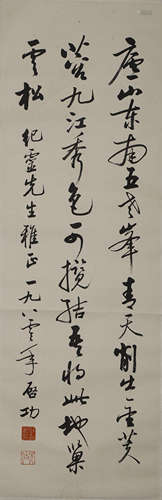 庐山东南五老峰青天削出金芙
蓉九江秀色可揽结吾将此地巢
云松 纪灵先生雅正 一九八零年 启功